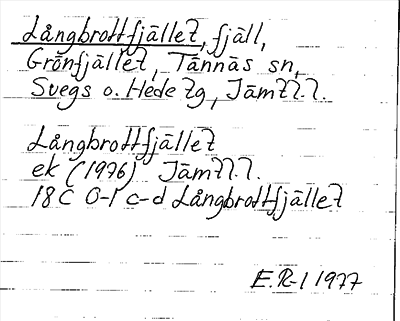 Långbrottfjället, fjäll,
Grönfjället, Tännäs sn,
Svegs o. Hede tg, Jämtl.l.
Långbrottfjället
ek (1976) Jämtl.l.
18C 0-1 c-d Långbrottfjället
E.R-l 1977